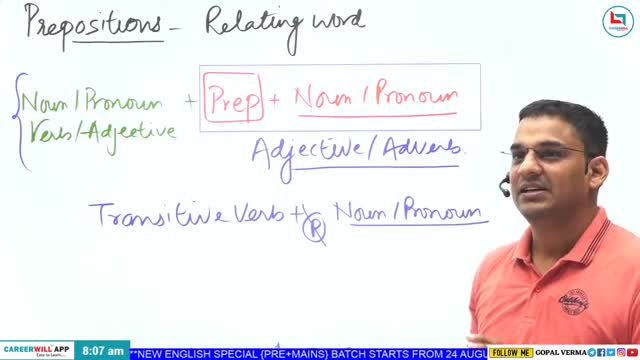 Prepositions - Relating word
Noun/Pronoun + Prep + Noun/Pronoun
Verb/Adjective
Adjective/Adverb.
Transitive Verb + P Noun/Pronoun
CAREERWILL APP
8:07 am
**NEW ENGLISH SPECIAL {PRE+MAINS} BATCH STARTS FROM 24 AUGU
FOLLOW ME
GOPAL VERMA